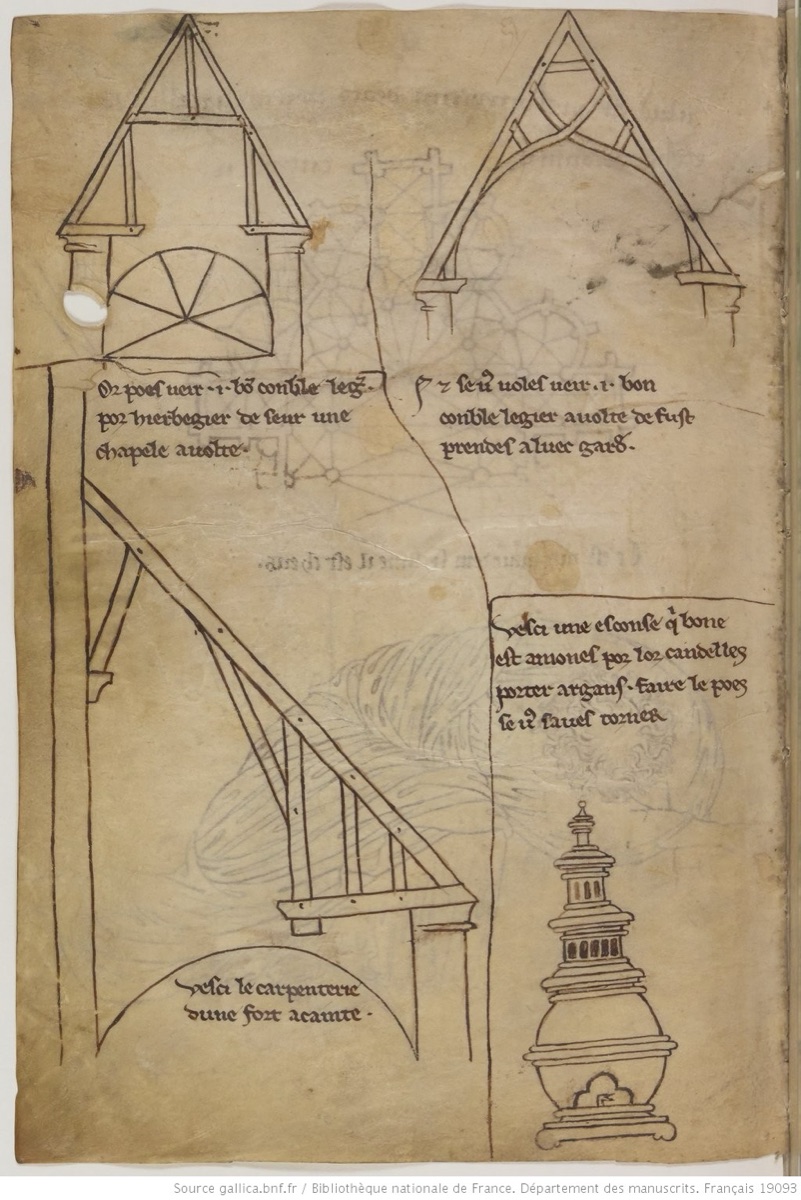 Or poes veir .i. bō conble legr̄.
por hierbegier de seur une
chapele a volte.
Et se vͦ voles veir .i. bon
conble legier a volte de fust
prendes aluec gard̄.
vesci une esconse qͥ bone
est a mones por lor candelles
porter argans. faire le poes
se vͦ saves torner
vesci le carpenterie
dune fort acainte.
Source gallica.bnf.fr / Bibliothèque nationale de France. Département des manuscrits. Français 19093